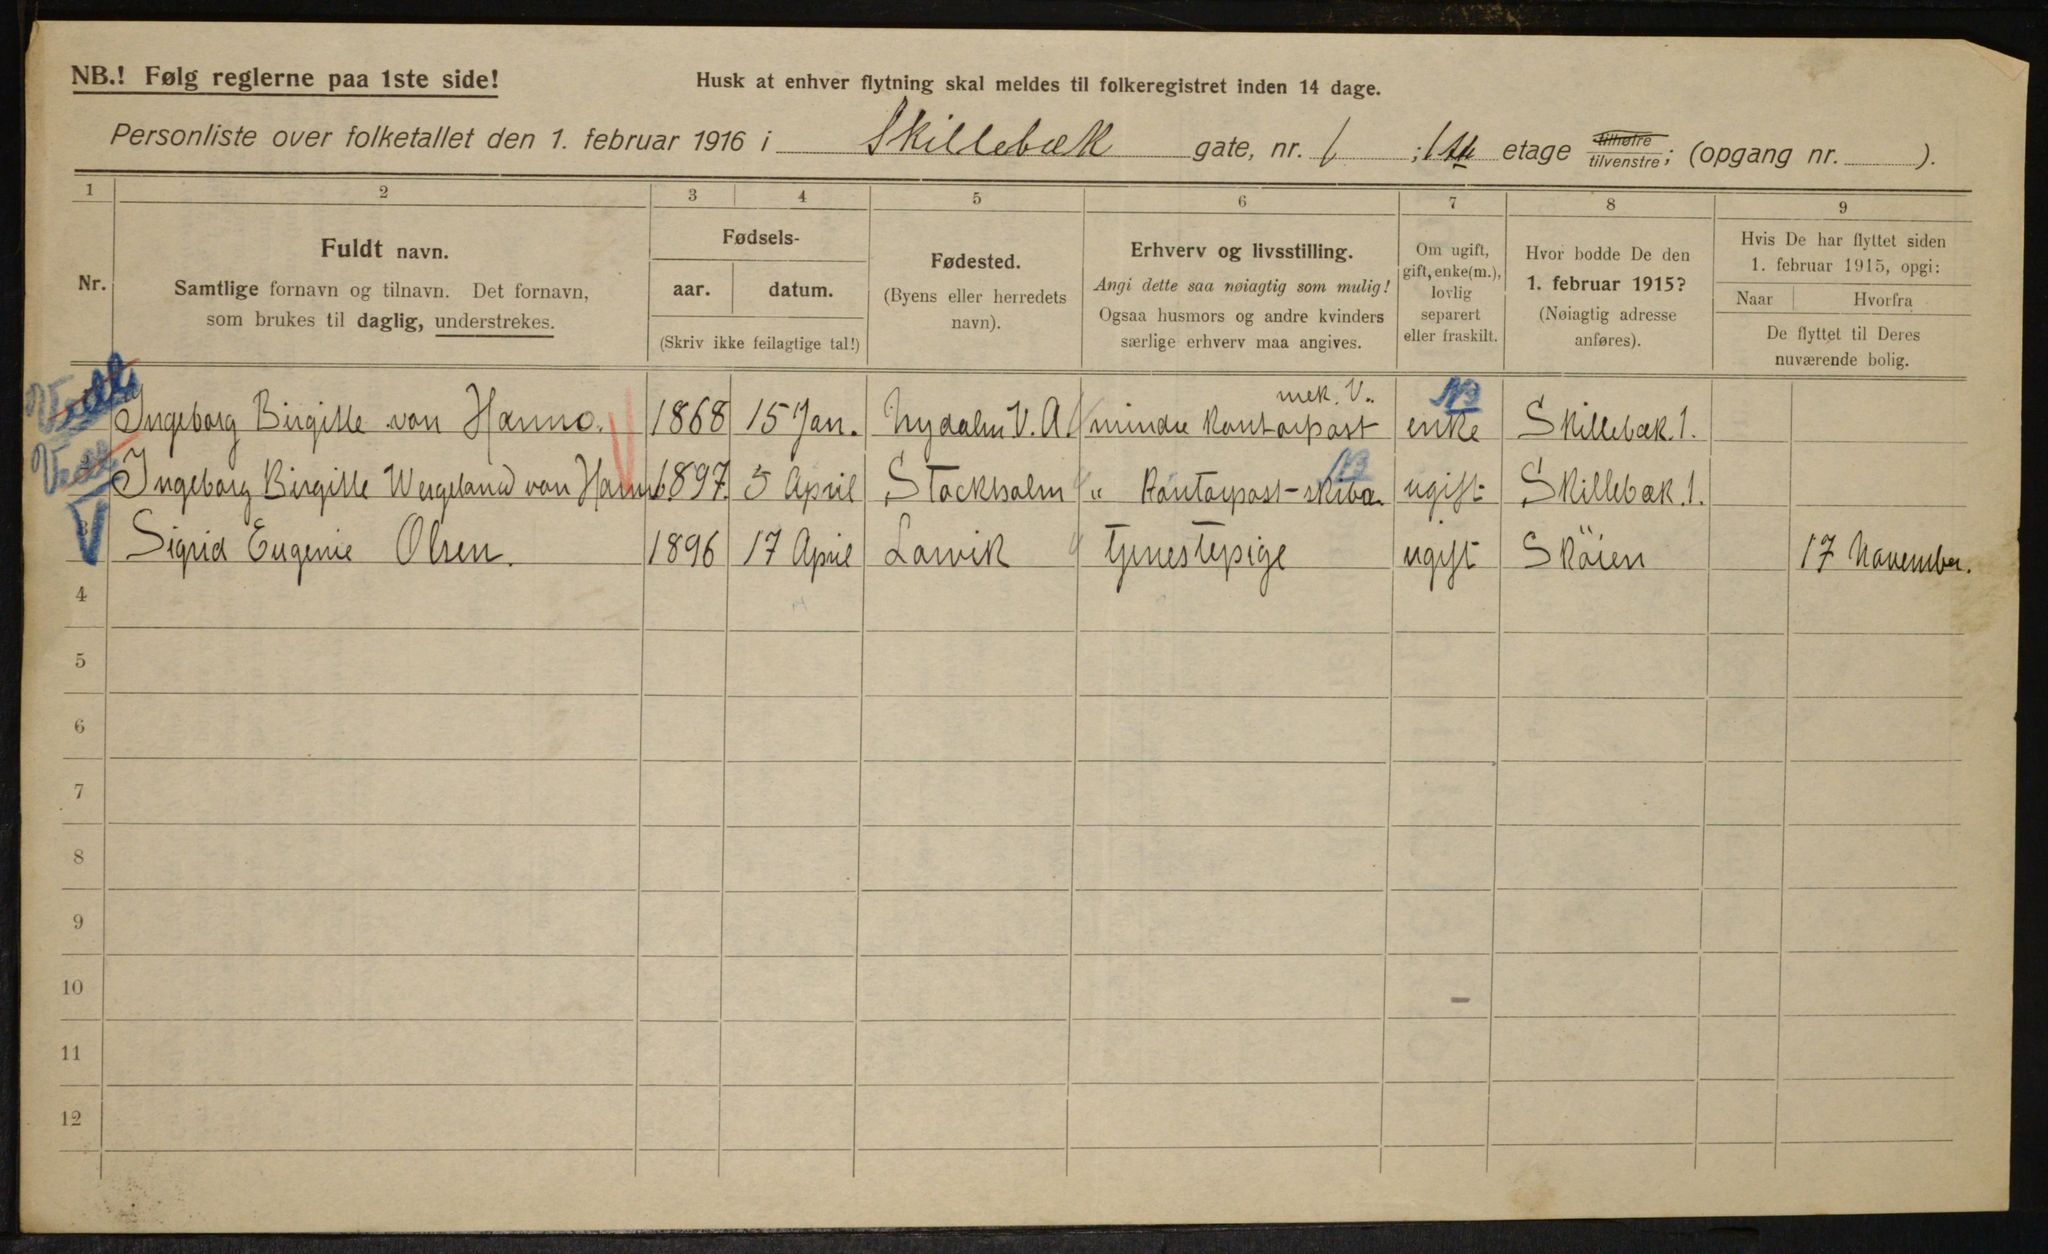 NB.! Følg reglerne paa 1ste side!
Husk at enhver flytning skal meldes til folkeregistret inden 14 dage.
Personliste over folketallet den 1. februar 1916 i Skillebæk gate, nr. 1 ; 1ste etage tilhøire tilvenstre; (opgang nr. ).
1 2 3 4 5 6 7 8 9
Nr.
Fuldt navn.
Samtlige fornavn og tilnavn. Det fornavn,
som brukes til daglig, understrekes.
Fødsels-
aar. datum.
(Skriv ikke feilagtige tal!)
Fødested.
(Byens eller herredets
navn).
Erhverv og livsstilling.
Angi dette saa nøiagtig som mulig!
Ogsaa husmors og andre kvinders
særlige erhverv maa angives.
Om ugift,
gift, enke(m.),
lovlig
separert
eller fraskilt.
Hvor bodde De den
1. februar 1915?
(Nøiagtig adresse
anføres).
Hvis De har flyttet siden
1. februar 1915, opgi:
Naar Hvorfra
De flyttet til Deres
nuværende bolig.
mek. V.
Ingeborg Birgitte von Hanno. 1868 15 Jan. Nydalen V. A. mindre kontorpost enke Skillebæk. 1.
Ingeborg Birgitte Wergeland von Hanno 1897. 5 April Stockholm " Kontorpost- ugift Skillebæk. 1.
3 Sigrid Eugenie Olsen. 1896 17 April Larvik tjenestepige ugift Sköien 17 November.
4
5
6
7
8
9
10
11
12